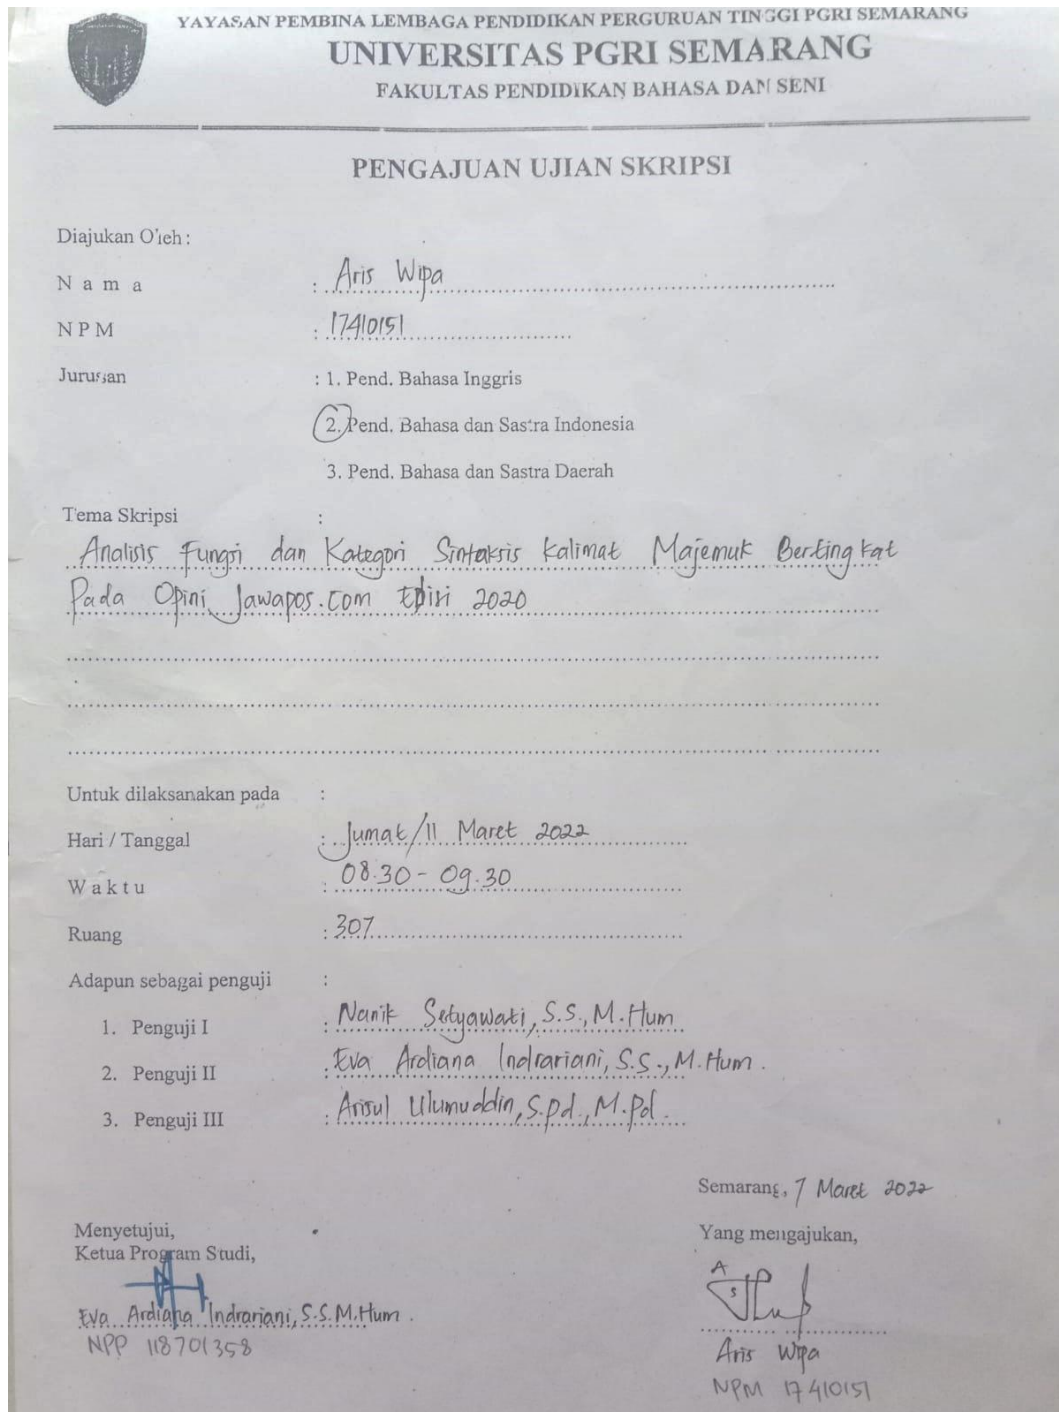 YAYASAN PEMBINA LEMBAGA PENDIDIKAN PERGURUAN TINGGI PGRI SEMARANG
UNIVERSITAS PGRI SEMARANG
FAKULTAS PENDIDIKAN BAHASA DAN SENI
PENGAJUAN UJIAN SKRIPSI
Diajukan Oleh :
N a m a : Aris Wipa
N P M : 17410151
Jurusan : 1. Pend. Bahasa Inggris
2. Pend. Bahasa dan Sastra Indonesia
3. Pend. Bahasa dan Sastra Daerah
Tema Skripsi :
Analisis Fungsi dan Kategori Sintaksis Kalimat Majemuk Bertingkat
Pada Opini Jawapos.Com Edisi 2020
Untuk dilaksanakan pada :
Hari / Tanggal : Jumat/11 Maret 2022
W a k t u : 08.30 - 09.30
Ruang : 307
Adapun sebagai penguji :
1. Penguji I : Nanik Setyawati, S.S., M.Hum
2. Penguji II : Eva Ardiana Indrariani, S.S., M.Hum.
3. Penguji III : Arisul Ulumuddin, S.Pd., M.Pd.
Semarang, 7 Maret 2022
Menyetujui, Yang mengajukan,
Ketua Program Studi,
Eva Ardiana Indrariani, S.S.M.Hum.
NPP 118701358
Aris Wipa
NPM 17410151